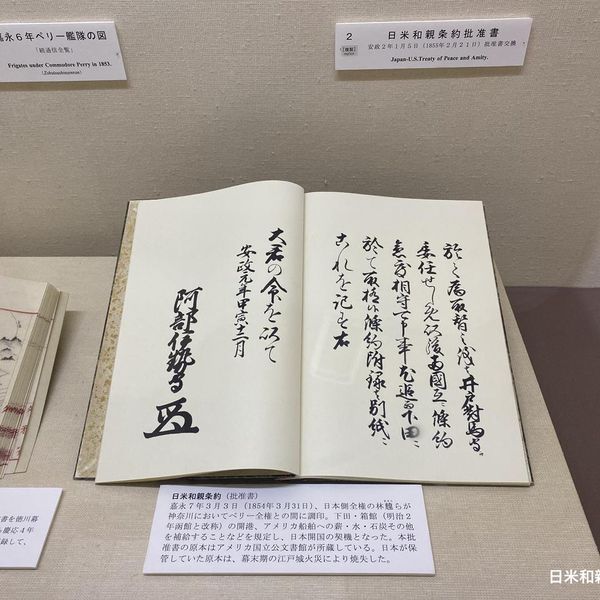 嘉永６年ペリー艦隊の図
「続通信全覧」
Frigates under Commodore Perry in 1853.
(Zokutsushinzenran)
2
【複製】
日米和親条約批准書
安政２年１月５日（1855年２月２１日）批准書交換
Japan-U.S.Treaty of Peace and Amity.
於て為取替之儀を井戸對馬守
委任せしめ以後両國正に條約
意度相守可申事尤追而下田に
於て取極候條約附録之別紙に
これを記す右
大君の命を以て
安政元年甲寅十二月
阿部伊勢守
日米和親条約（批准書）
嘉永７年３月３日（1854年３月31日）、日本側全権の林韑らが
神奈川においてペリー全権との間に調印。下田・箱館（明治２
年函館と改称）の開港、アメリカ船舶への薪・水・石炭その他
を補給することなどを規定し、日本開国の契機となった。本批
准書の原本はアメリカ国立公文書館が所蔵している。日本が保
管していた原本は、幕末期の江戸城火災により焼失した。
書を徳川幕
慶応４年
録して、
日米和親